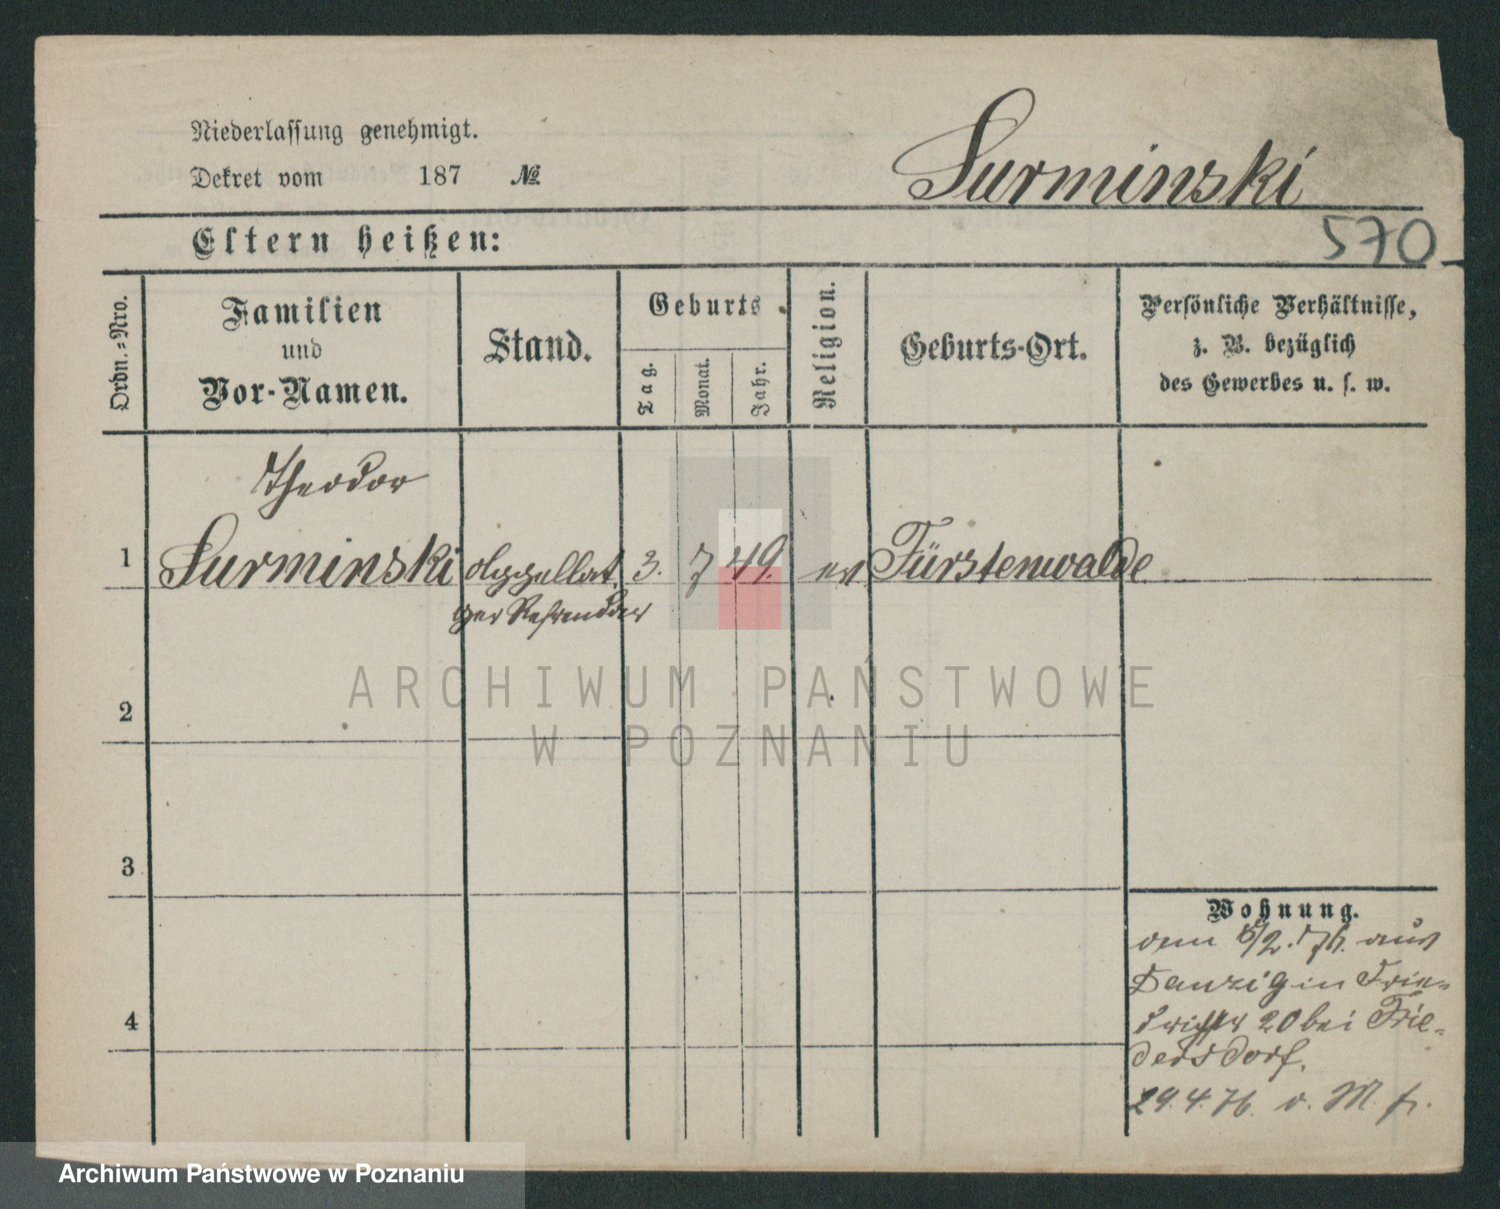 Niederlassung genehmigt.
Dekret vom 187 №
Surminski
Eltern heißen:
570
Ordn.-Nro.
Familien
und
Vor-Namen.
Stand.
Geburts
Tag.
Monat.
Jahr.
Religion.
Geburts-Ort.
Persönliche Verhältnisse,
z. B. bezüglich
des Gewerbes u. s. w.
Theodor
1 Surminski Appellat. 3. 7 49. ev Fürstenwalde
ger Refrendar
ARCHIWUM PAŃSTWOWE
W POZNANIU
2
3
4
Wohnung.
/2. 76. aus
Danzig in Frie-
drichstr 20 bei Frie-
dersdorf.
29.4.76. v. M.
Archiwum Państwowe w Poznaniu